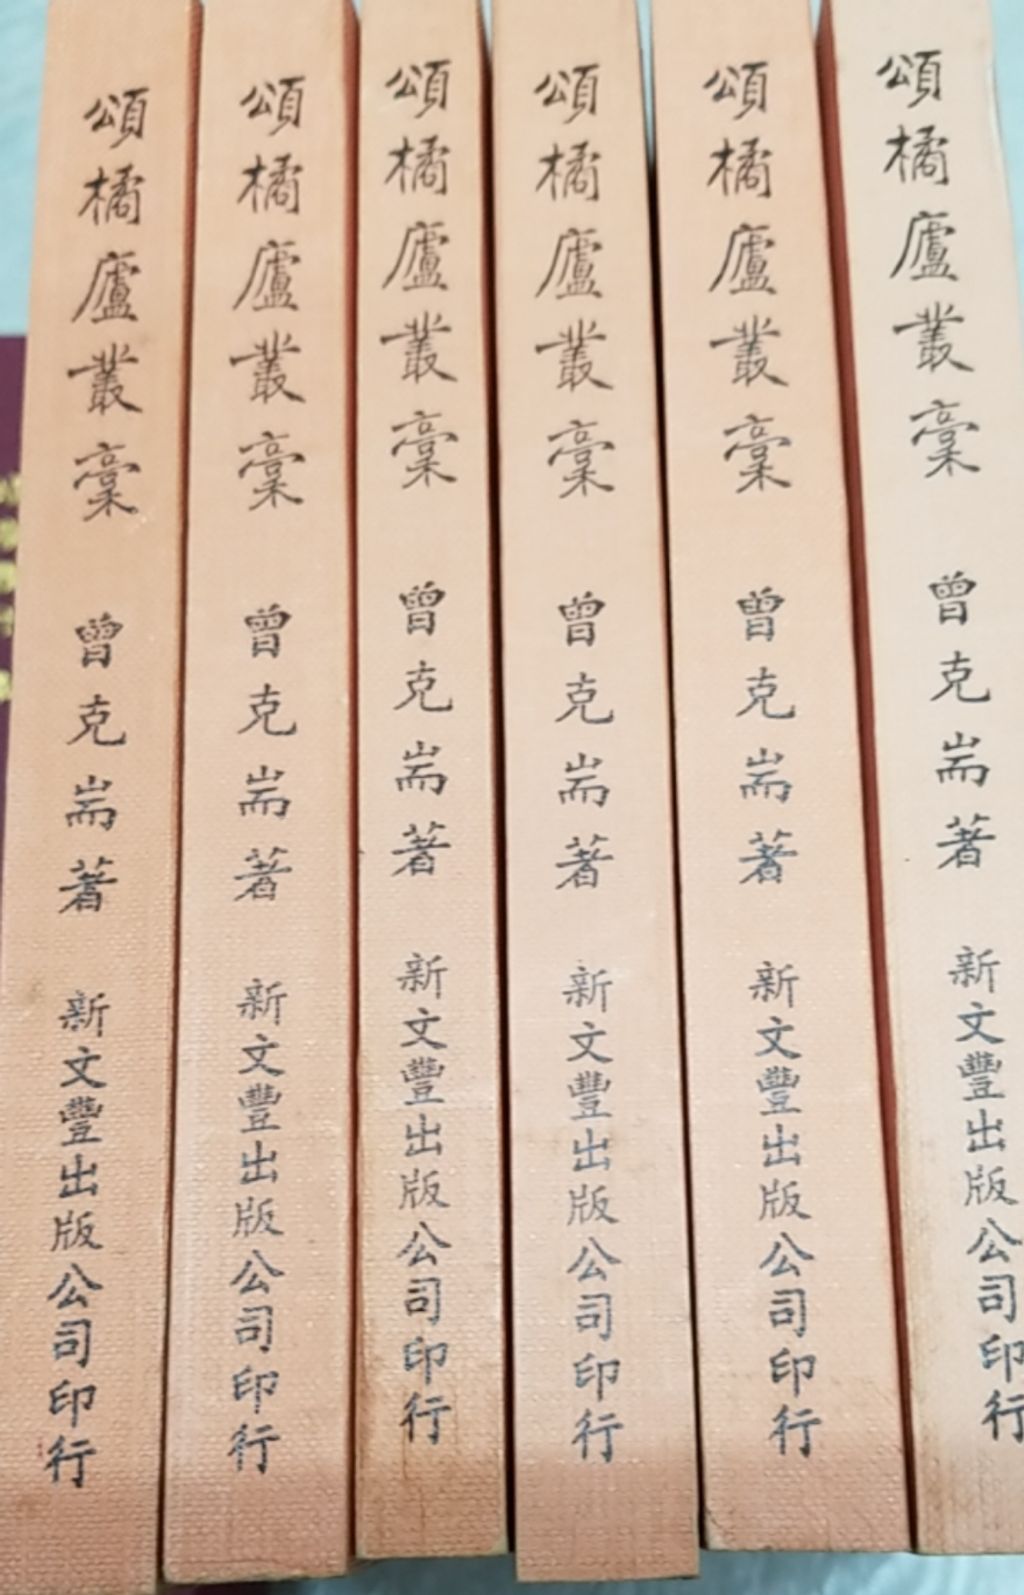 頌橘廬叢稾 曾克耑著 新文豐出版公司印行
頌橘廬叢稾 曾克耑著 新文豐出版公司印行
頌橘廬叢稾 曾克耑著 新文豐出版公司印行
頌橘廬叢稾 曾克耑著 新文豐出版公司印行
頌橘廬叢稾 曾克耑著 新文豐出版公司印行
頌橘廬叢稾 曾克耑著 新文豐出版公司印行